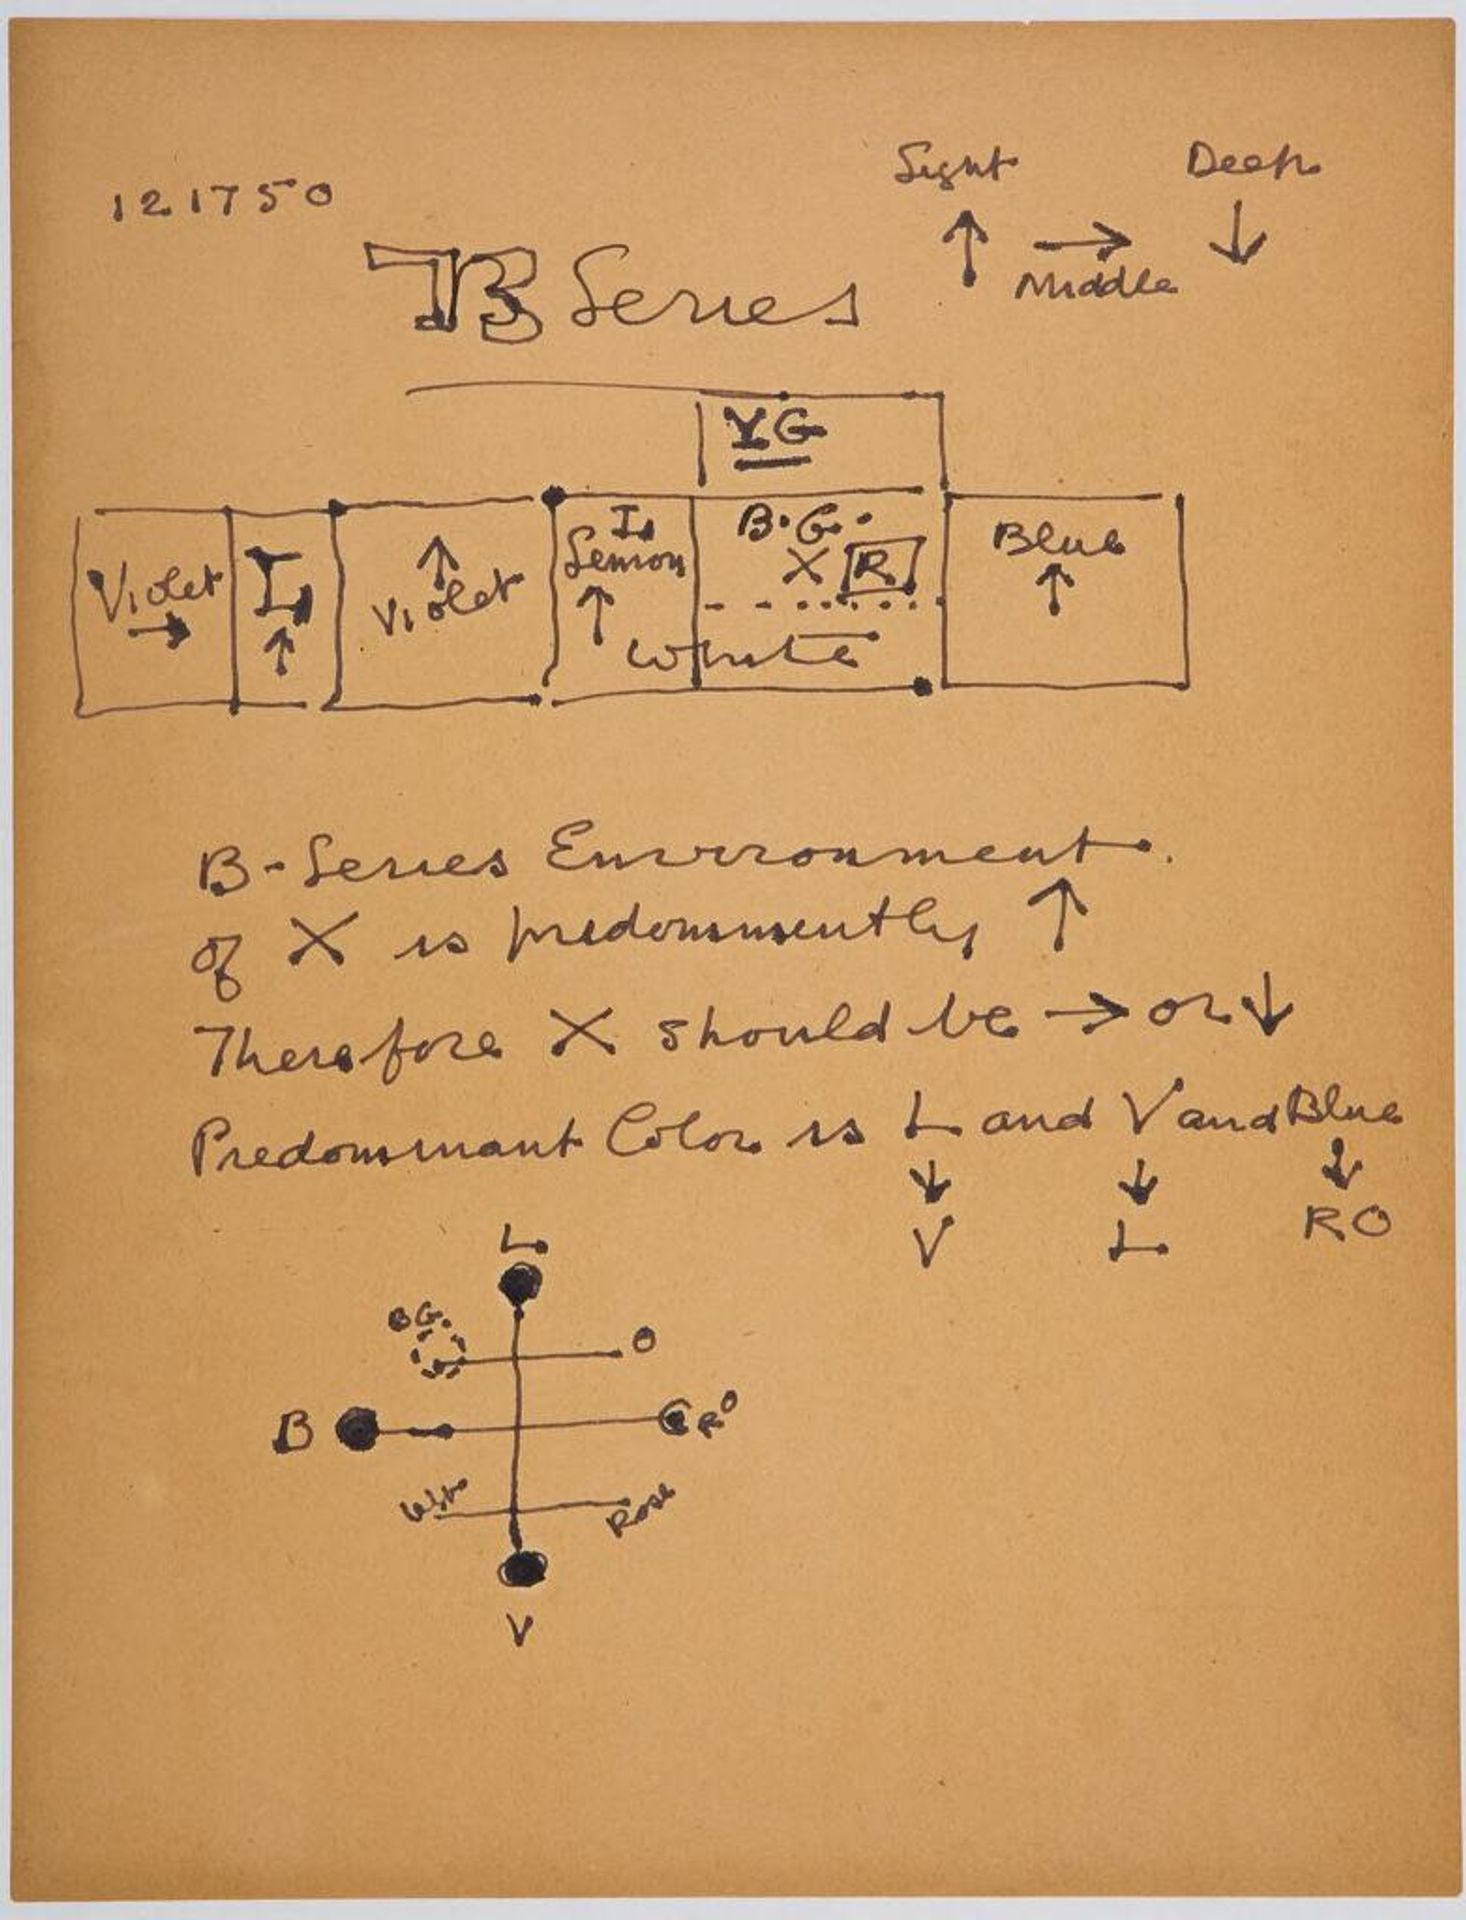 Light Deep
121750
↑ → ↓
Middle
B Series
YG
Violet → L ↑ ↑ Violet L Lemon ↑ B.G. X R Blue ↑
White
B-Series Environment.
of X is predominently ↑
Therefore X should be → or ↓
Predominant Color is L and V and Blue
↓ ↓ ↓
V L RO
L
BG. O
B RO
Rose
V